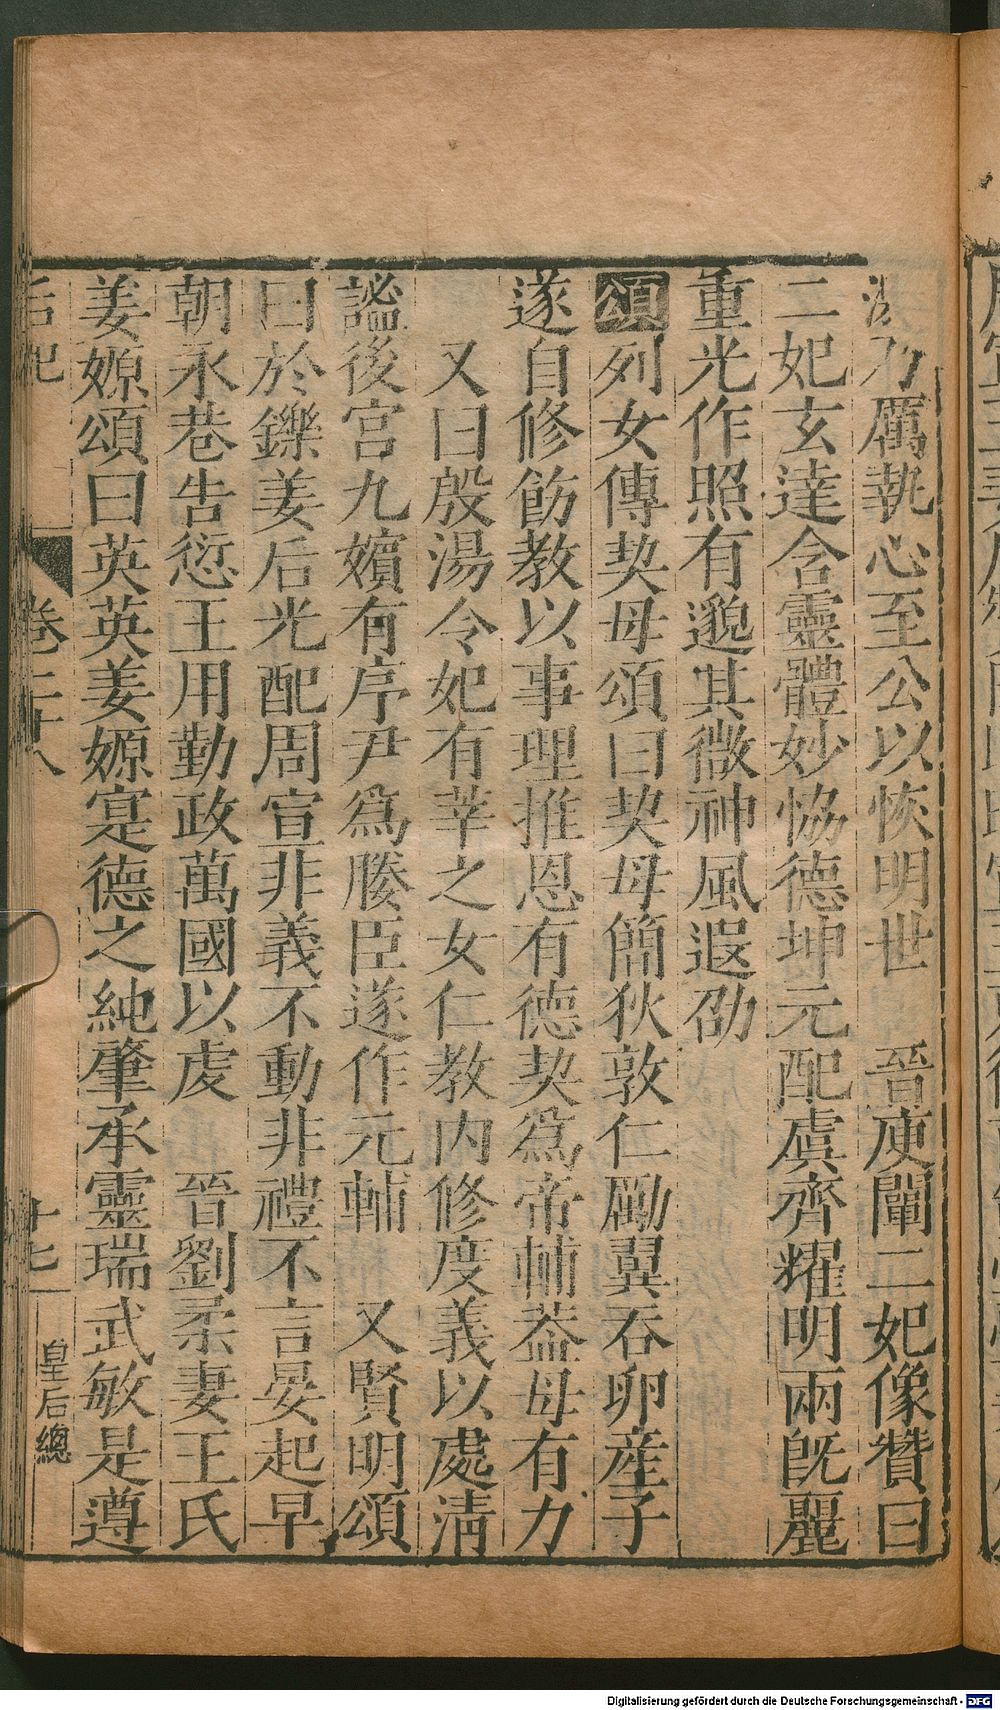 厲執心至公以恢明世　晉庾闡二妃像贊曰
二妃玄達含靈體妙恊德坤元配虞齊耀明兩旣麗
重光作照有邈其微神風遐劭
頌列女傳契母頌曰契母簡狄敦仁勵翼吞卵産子
遂自修飭教以事理推恩有德契爲帝輔葢母有力
又曰殷湯令妃有莘之女仁教内修度義以處清
謐後宮九嬪有序尹爲媵臣遂作元輔　又賢明頌
曰於鑠姜后光配周宣非義不動非禮不言晏起早
朝永巷告愆王用勤政萬國以虔　晉劉柔妻王氏
姜嫄頌曰英英姜嫄寔德之純肇承靈瑞武敏是遵
卷二十八
十七
皇后總
Digitalisierung gefördert durch die Deutsche Forschungsgemeinschaft - DFG